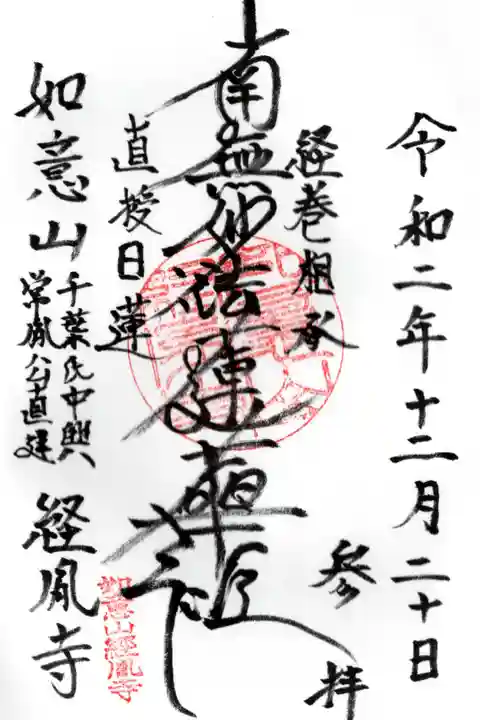 令和二年十二月二十日
参拝
経巻相承
南無妙法蓮華経
直授日蓮
千葉氏中興
常胤公直建
如意山
経胤寺
如意山經胤寺